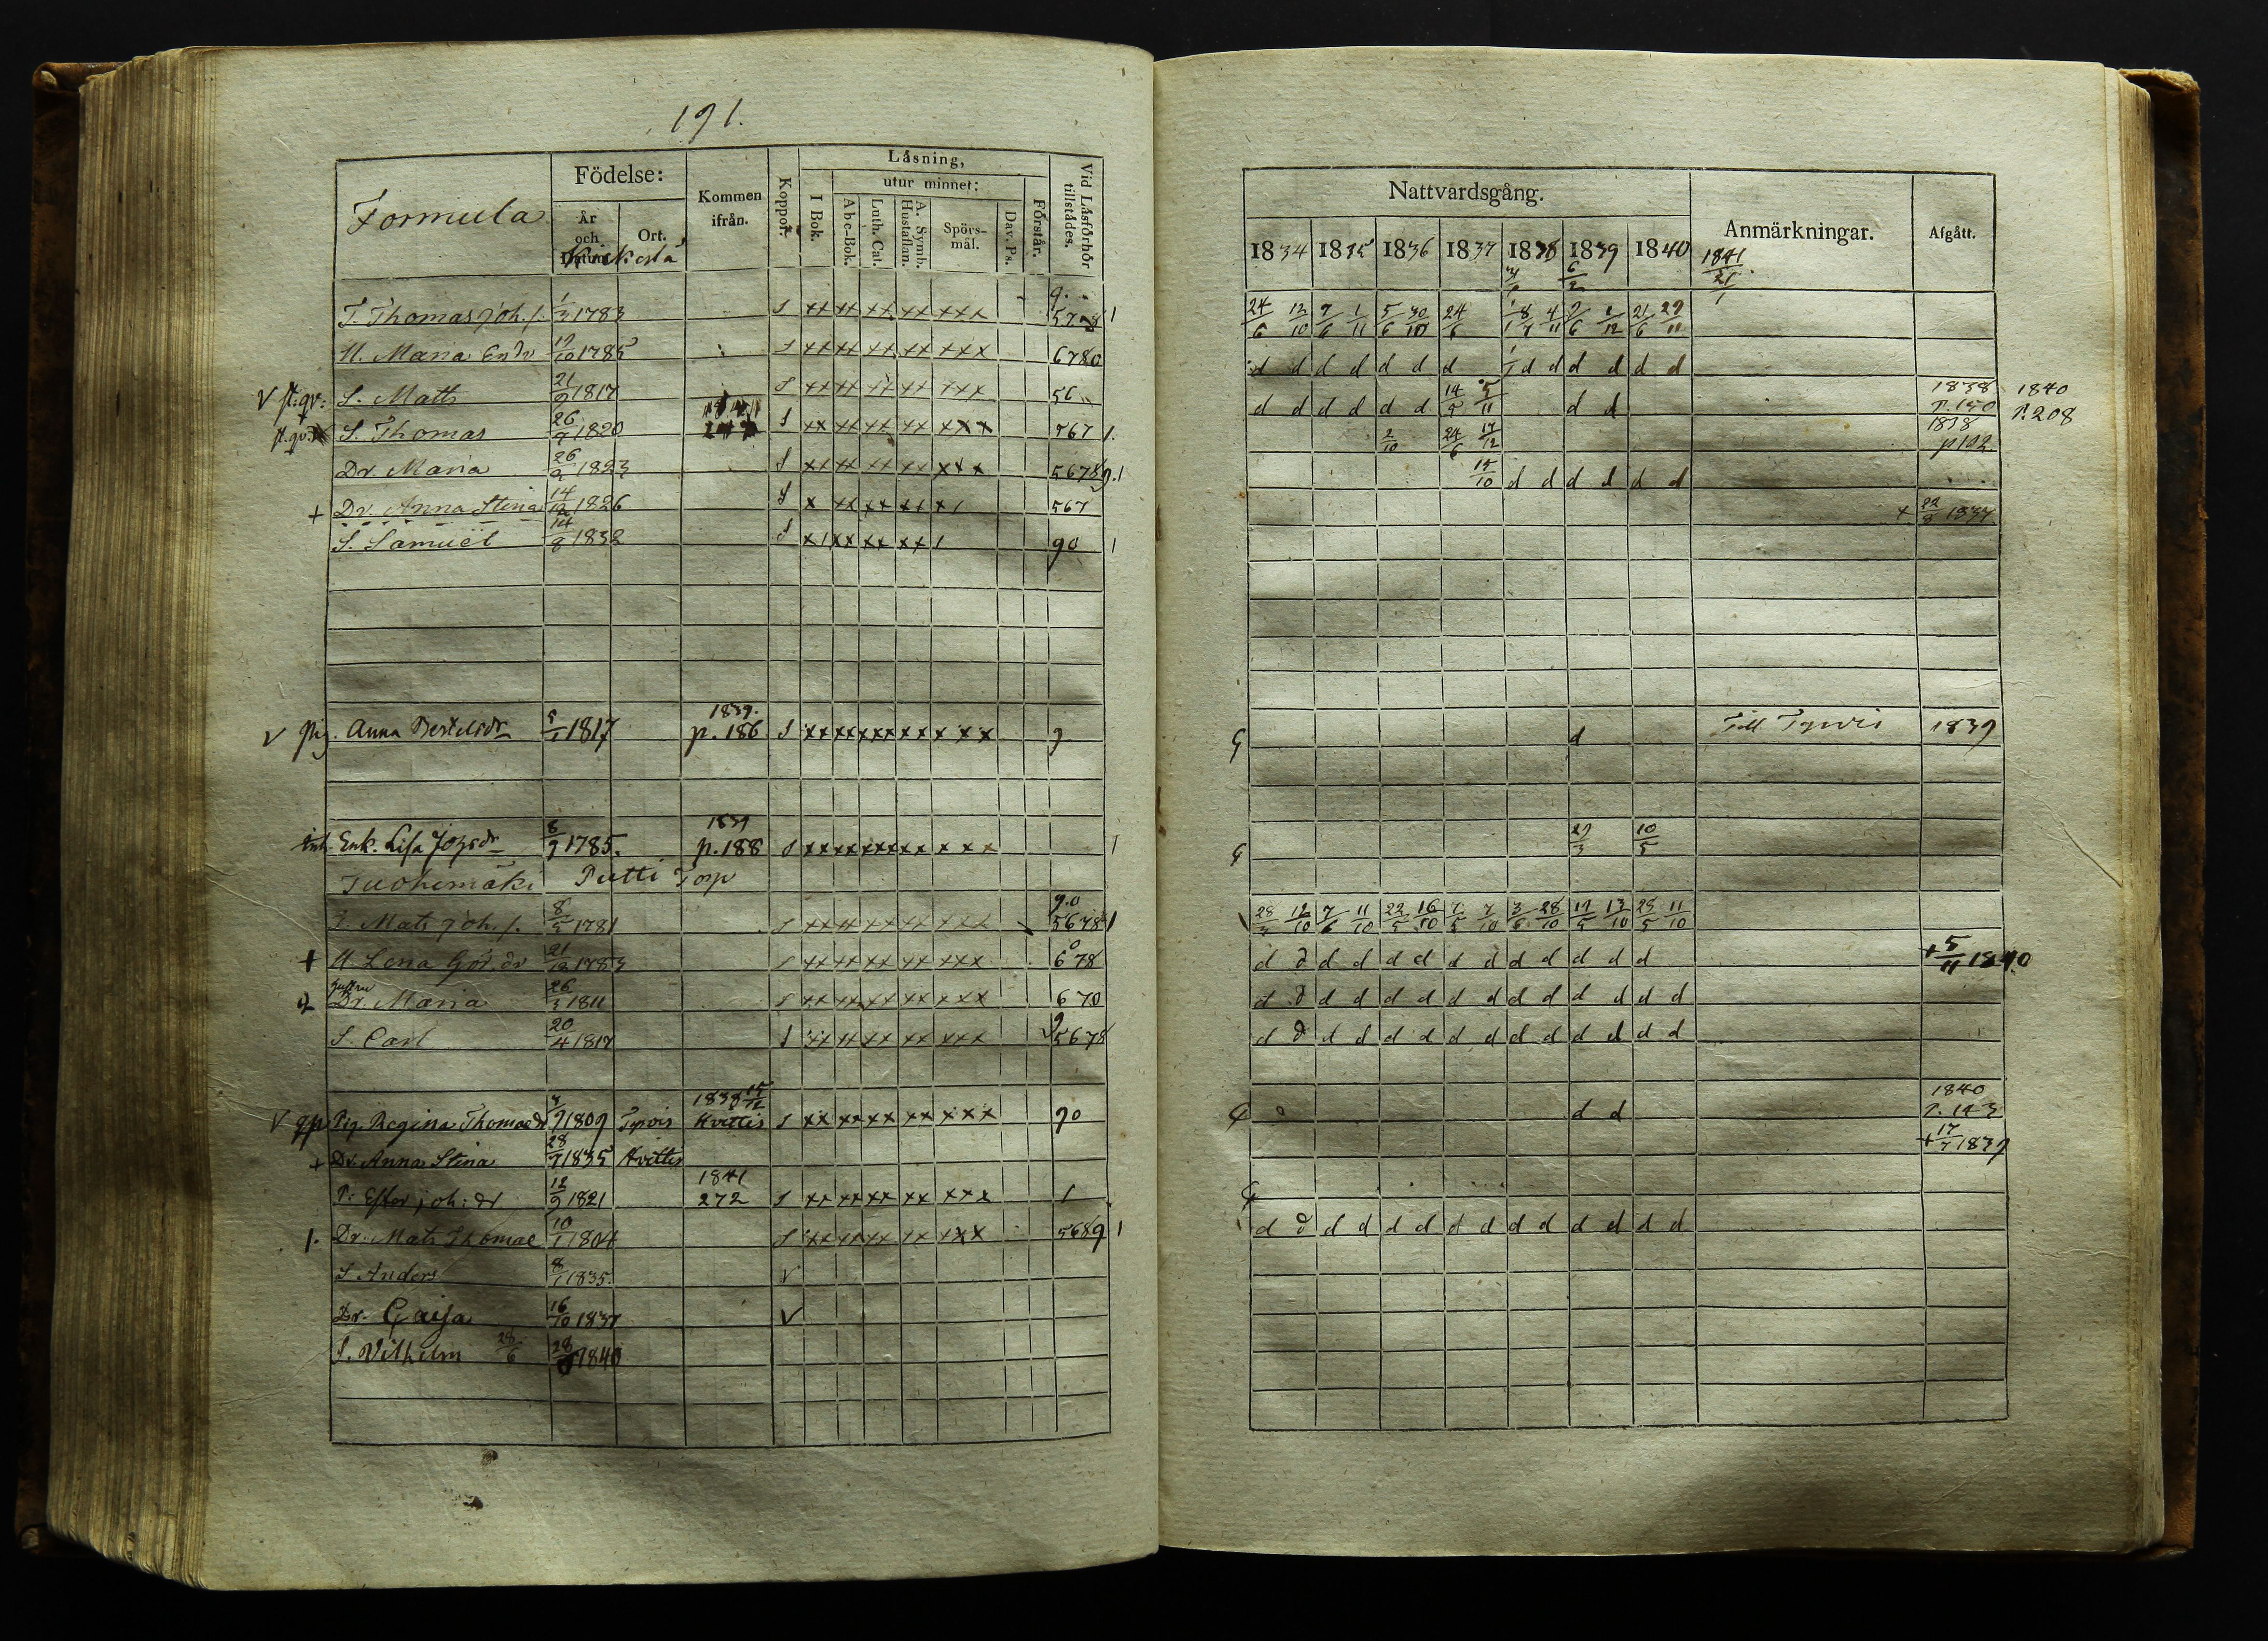 191.
Formula
Födelse:
År och Datum.
Ort.
Kommen ifrån.
Koppor.
Läsning,
I Bok.
utur minnet:
Abc-Bok.
Luth. Cat.
A. Symb. Hustaflan.
Spörsmål.
Dav. Ps.
Förstår.
Vid Läsförhör tillstädes.
T. Thomas Joh. s. 1/3 1783 s xx xx xx xx xxx
M. Maria 19/10 1785 s xx xx xx xx xxx 6780
S. Matts 21/9 1817 s xx xx xx xx xxx 56
S. Thomas 26/9 1820 s xx xx xx xx xxx 567 1.
Dr. Maria 26/2 1823 s xx xx xx xx xxx 56789.1
+ Dr. Anna Stina 14/12 1826 s x xx xx xx x1 567
S. Samuel 14/8 1832 s x1 xx xx xx 1 90 1
1839.
V Pig. Anna Bertelsdr 5/1 1817 p. 186 s xx xx xx xx xxx 9
1839
Enk. Lisa 8/9 1785. p. 188 s xx xx xx xx xxx 1
Tuohimäki Putti Torp
9.0
T. Mats Joh. s. 8/5 1781 s xx xx xx xx xxx 5678 1
+ M Lena 21/12 1783 s xx xx xx xx xxx 6 78 0
Dr. Maria 26/3 1811 s xx xx xx xx xxx 670
S. Carl 20/4 1817 s xx xx xx xx xxx 5678 9
1838 15/12
V Pig. Regina Thomaedr 1809 Tyrvis Hvittis s xx xx xx xx xxx 90
+ Dr. Anna Stina 28/7 1835 Hvittis
1841
P: Ester joh: dr 12/9 1821 272 s xx xx xx xx xxx 1
1. Dr: Mats Thomae 10/1 1804 s xx xx xx xx xxx 5689 1
S Anders 8/1 1835. V
Dr. Cajsa 16/10 1837 V
S. Vilhelm 28/6 28/6 1840
Nattvardsgång.
Anmärkningar.
Afgått.
1834 1835 1836 1837 1838 1839 1840 1841
6/2 21/1
24/6 12/10 7/6 1/11 5/6 30/10 24/6 8/7 4/11 2/6 2/12 21/6 29/11
d d d d d d d d d d d d d
d d d d d d 14/5 5/11 d d 1838 p. 150 1840 P. 208
2/10 24/6 17/12 1838 p 102
15/10 d d d d d d
+ 22/8 1837
G d Till Tyrvis 1839
G 29/3 10/5
28/5 12/10 7/6 11/10 22/5 16/10 7/5 7/10 3/6 28/10 19/5 13/10 28/5 11/10
d d d d d d d d d d d d d + 5/11 1840
d d d d d d d d d d d d d d
d d d d d d d d d d d d d d
G d d 1840 P. 143
+ 17/7 1839
G
d d d d d d d d d d d d d d